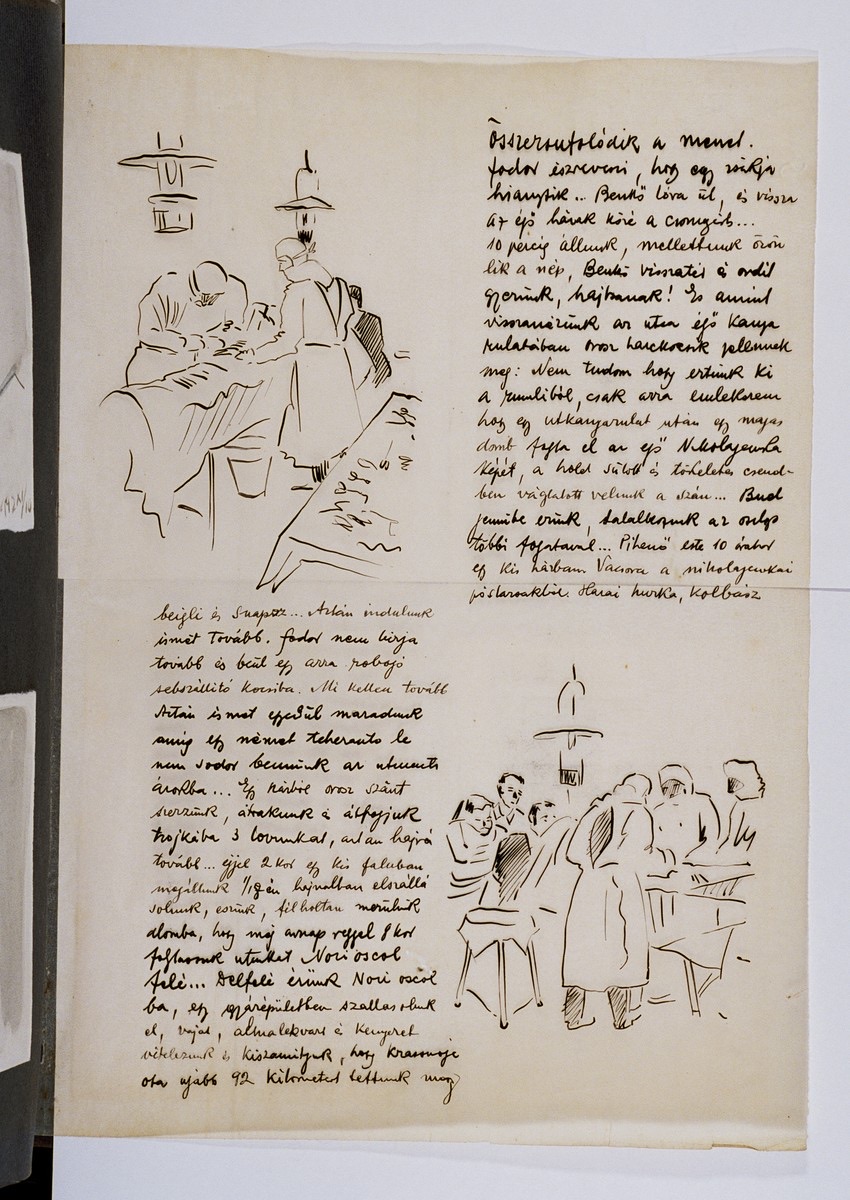 Összetorlódik a menet.
Fodor észreveszi, hogy egy zsákja
hiányzik... Benkő lóra ül, és vissza
az égő házak közé a csomagért...
10 percig állunk, mellettünk özön
lik a nép, Benkő visszatér és ordít
gyerünk, hajtsanak! És amint
visszanézünk az utca égő kanya
rulatában orosz harckocsik jelennek
meg: Nem tudom hogy értünk ki
a zűrből, csak arra emlékszem
hogy egy utkanyarulat után egy magas
domb fogta el az égő Nikolajewka
képét, a hold sütött és tökéletes csend-
ben vágtatott velünk a szán... Bud
jennibe érünk, találkozunk az oszlop
többi fogatával... Pihenő este 10 órakor
egy kis házban. Vacsora a nikolajewkai
póstazsákból. Hazai hurka, kolbász
beigli és snapsz... Aztán indulunk
ismét tovább. Fodor nem birja
tovább és beül egy arra robogó
sebszállitó kocsiba. Mi ketten tovább
Aztán ismét egyedül maradunk
amig egy német teherauto le
nem sodor bennünk az utmenti
árokba... Egy házból orosz szánt
szerzünk, átrakunk és átfogjuk
trojkába 3 lovunkat, aztan hajrá
tovább... éjjel 2 kor egy kis faluban
megállunk hajnalban elszállá
solunk, eszünk, félholtan merülünk
álomba, hogy még aznap reggel 8 kor
folytassuk utunkat Novi oscol
felé... Délfelé érünk Novi oscol
ba, egy gyárépületben szállásolunk
el, vajat, almalekvárt és kenyeret
vételezünk és kiszámitjuk, hogy Krasznoje
óta ujabb 92 kilometert tettünk meg